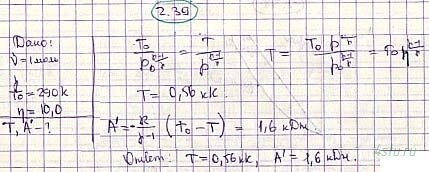 2.39
Дано:
ν = 1 моль
T₀ = 290 К
η = 10,0
T, A' - ?
T₀/p₀^((γ-1)/γ) = T/p^((γ-1)/γ)
T = T₀ p^((γ-1)/γ)/p₀^((γ-1)/γ) = T₀ η^((γ-1)/γ)
T = 0,56 кК.
A' = -R/(γ-1) (T₀ - T) = 1,6 кДж.
Ответ: T = 0,56 кК, A' = 1,6 кДж.